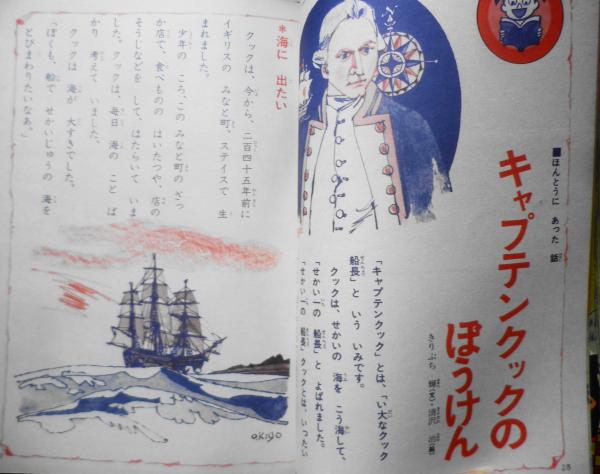 ■ほんとうに あった 話
キャプテンクックの
ぼうけん
きりぶち 輝(文)・清沢 治(絵)
「キャプテンクック」とは、「い大なクック
船長」と いう いみです。
クックは、せかいの 海を こう海して、
「せかい一の 船長」と よばれました。
「せかい一の 船長」クックとは、いったい
28
*海に 出たい
クックは、今から、二百四十五年前に
イギリスの みなと町、ステイスで 生
まれました。
少年の ころ、この みなと町の ざっ
か店で、食べものの はいたつや、店の
そうじなどを して、はたらいて いま
した。クックは、毎日 海の こと ば
かり 考えて いました。
クックは 海が 大すきでした。
「ぼくも、船で せかいじゅうの 海を
とびまわりたいなあ。」
OKIYO